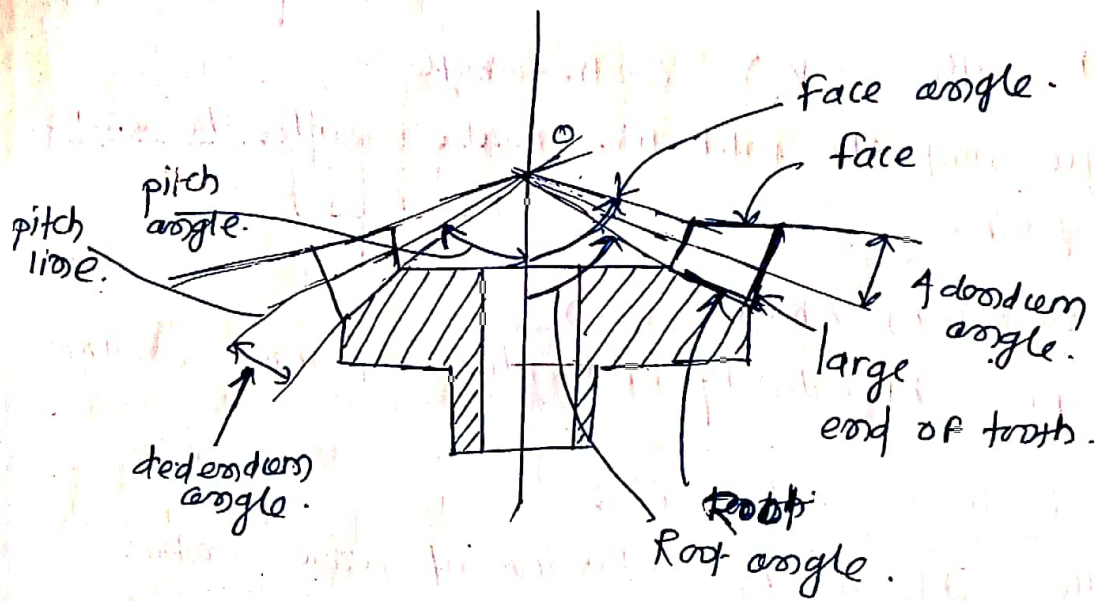 Face angle.
face
O
pitch
angle.
pitch
line.
Addendum
angle.
large
end of tooth.
dedendum
angle.
Root
Root angle.